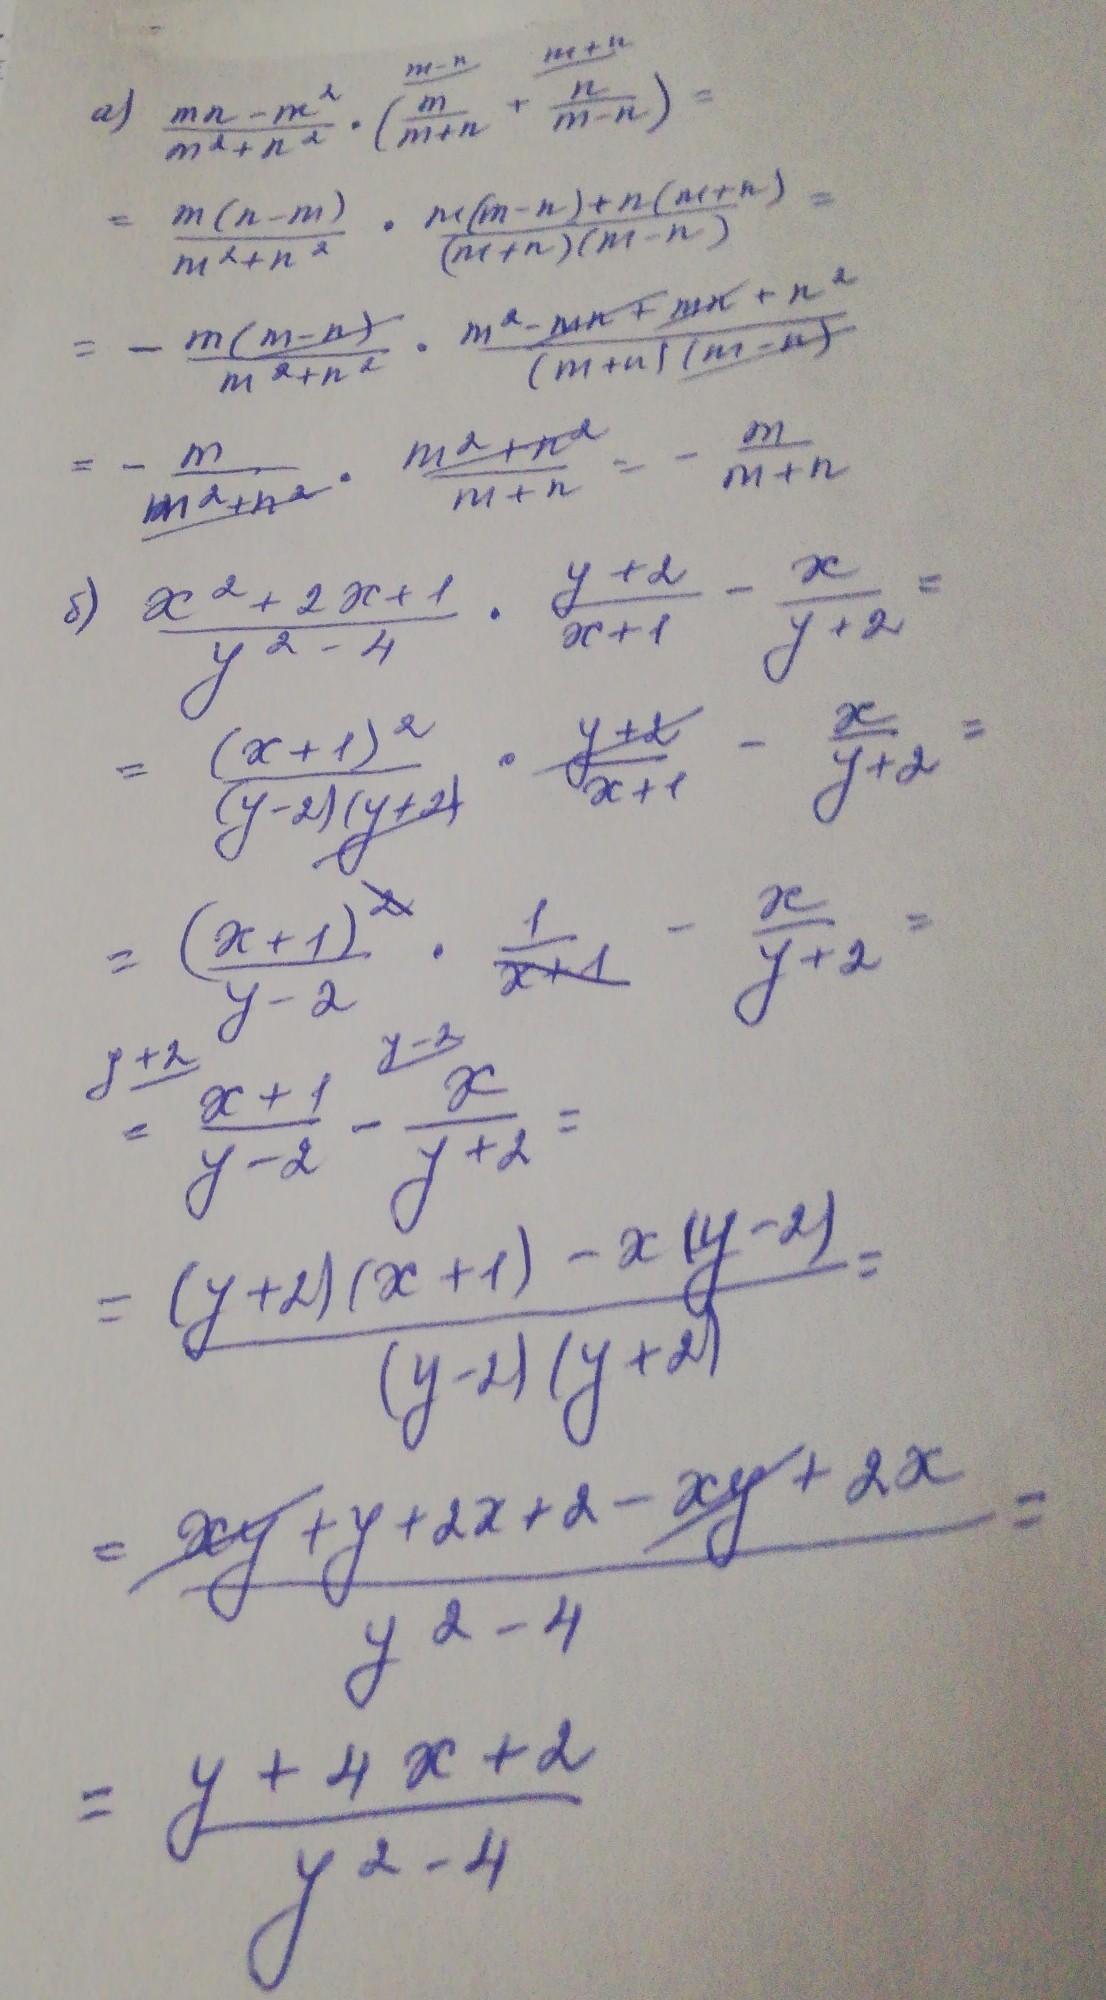 m-n m+n
а) (mn-m²)/(m²+n²) · (m/(m+n) + n/(m-n)) =
= m(n-m)/(m²+n²) · (m(m-n)+n(m+n))/((m+n)(m-n)) =
= - m(m-n)/(m²+n²) · (m²-mn+mn+n²)/((m+n)(m-n))
= - m/(m²+n²) · (m²+n²)/(m+n) = - m/(m+n)
б) (x²+2x+1)/(y²-4) · (y+2)/(x+1) - x/(y+2) =
= (x+1)²/((y-2)(y+2)) · (y+2)/(x+1) - x/(y+2) =
= (x+1)²/(y-2) · 1/(x+1) - x/(y+2) =
y+2 y-2
= (x+1)/(y-2) - x/(y+2) =
= ((y+2)(x+1) - x(y-2))/((y-2)(y+2)) =
= (xy+y+2x+2-xy+2x)/(y²-4) =
= (y+4x+2)/(y²-4)